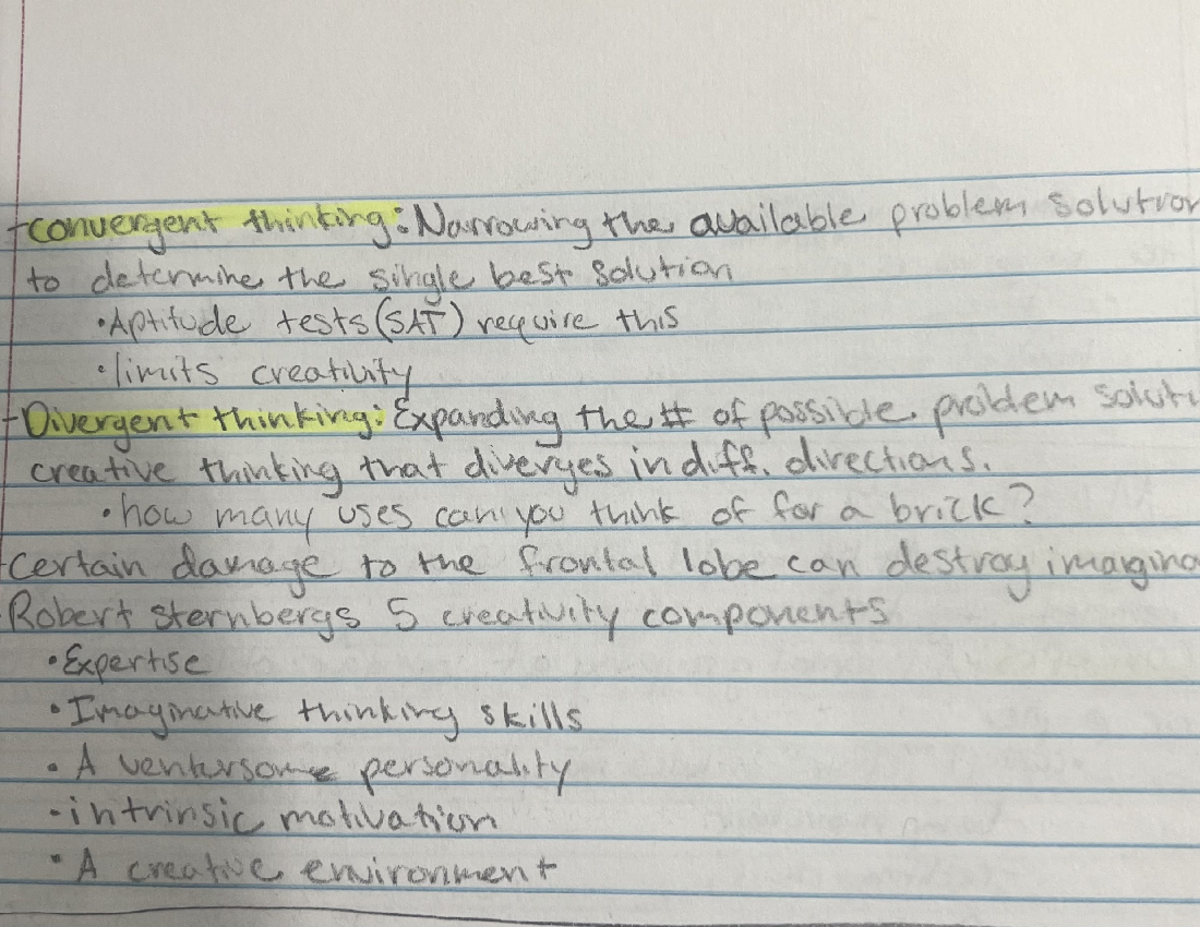 -convergent thinking: Narrowing the available problem solution
to determine the single best solution
•Aptitude tests (SAT) require this
•limits creativity
-Divergent thinking: Expanding the # of possible problem solut
creative thinking that diverges in diff. directions.
•how many uses can you think of for a brick?
-Certain damage to the frontal lobe can destroy imagina
-Robert Sternbergs 5 creativity components
•Expertise
•Imaginative thinking skills
•A venturesome personality
•intrinsic motivation
•A creative environment